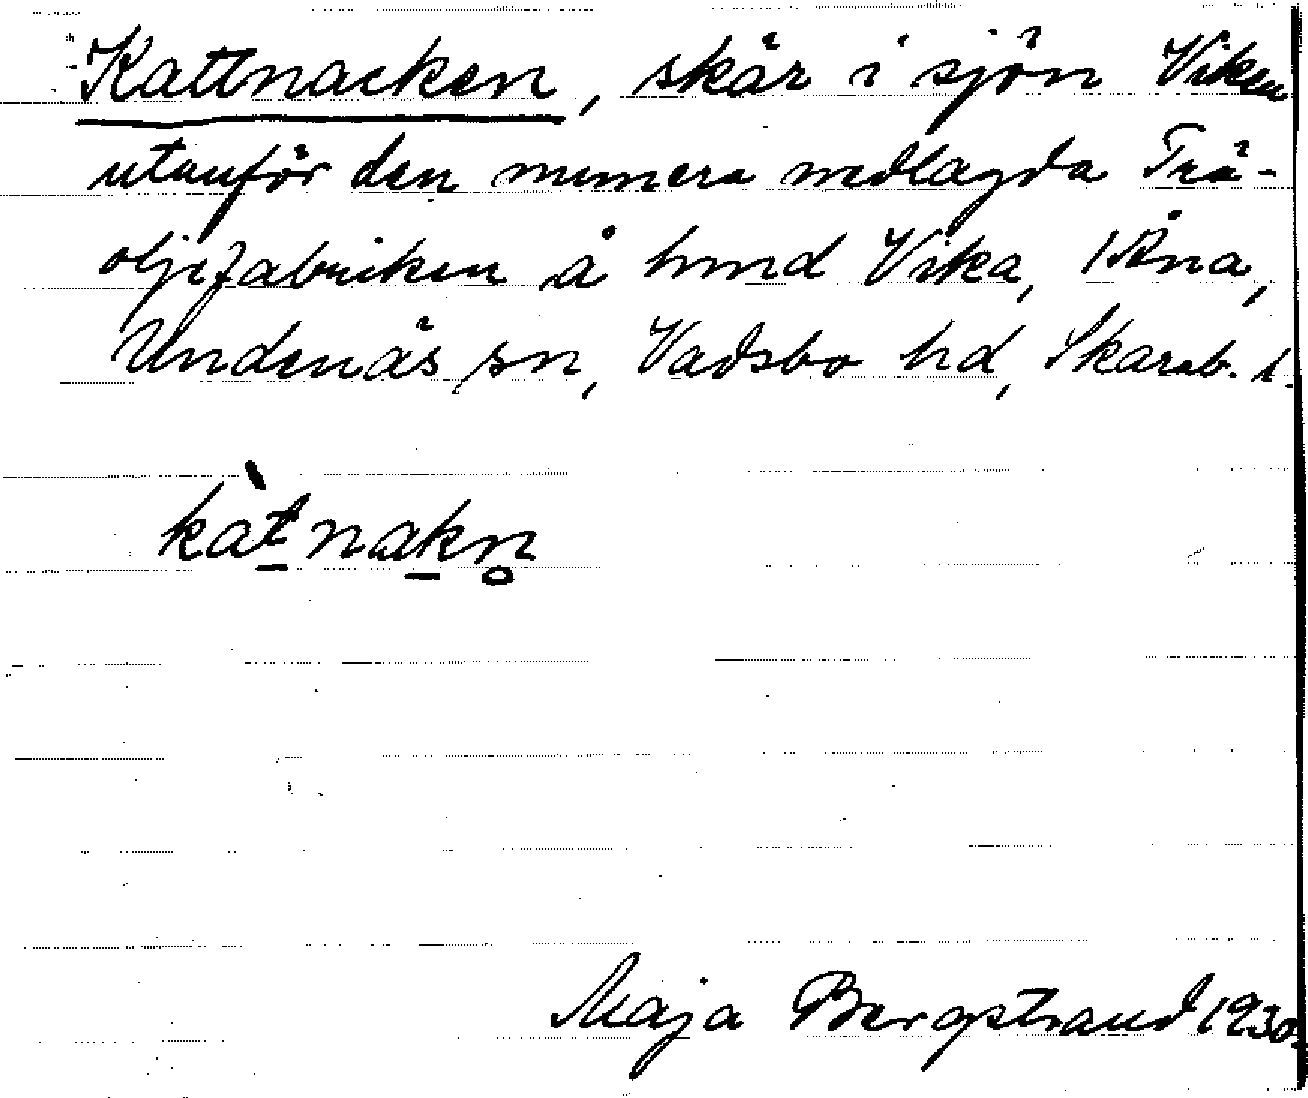 Kattnacken, skär i sjön Viken
utanför den numera nedlagda Trä-
oljefabriken å Vika,
Undenäs sn, Vadsbo hd, Skarab. l.
kàt̲nak̲n̥
Maja Bergstrand 1930